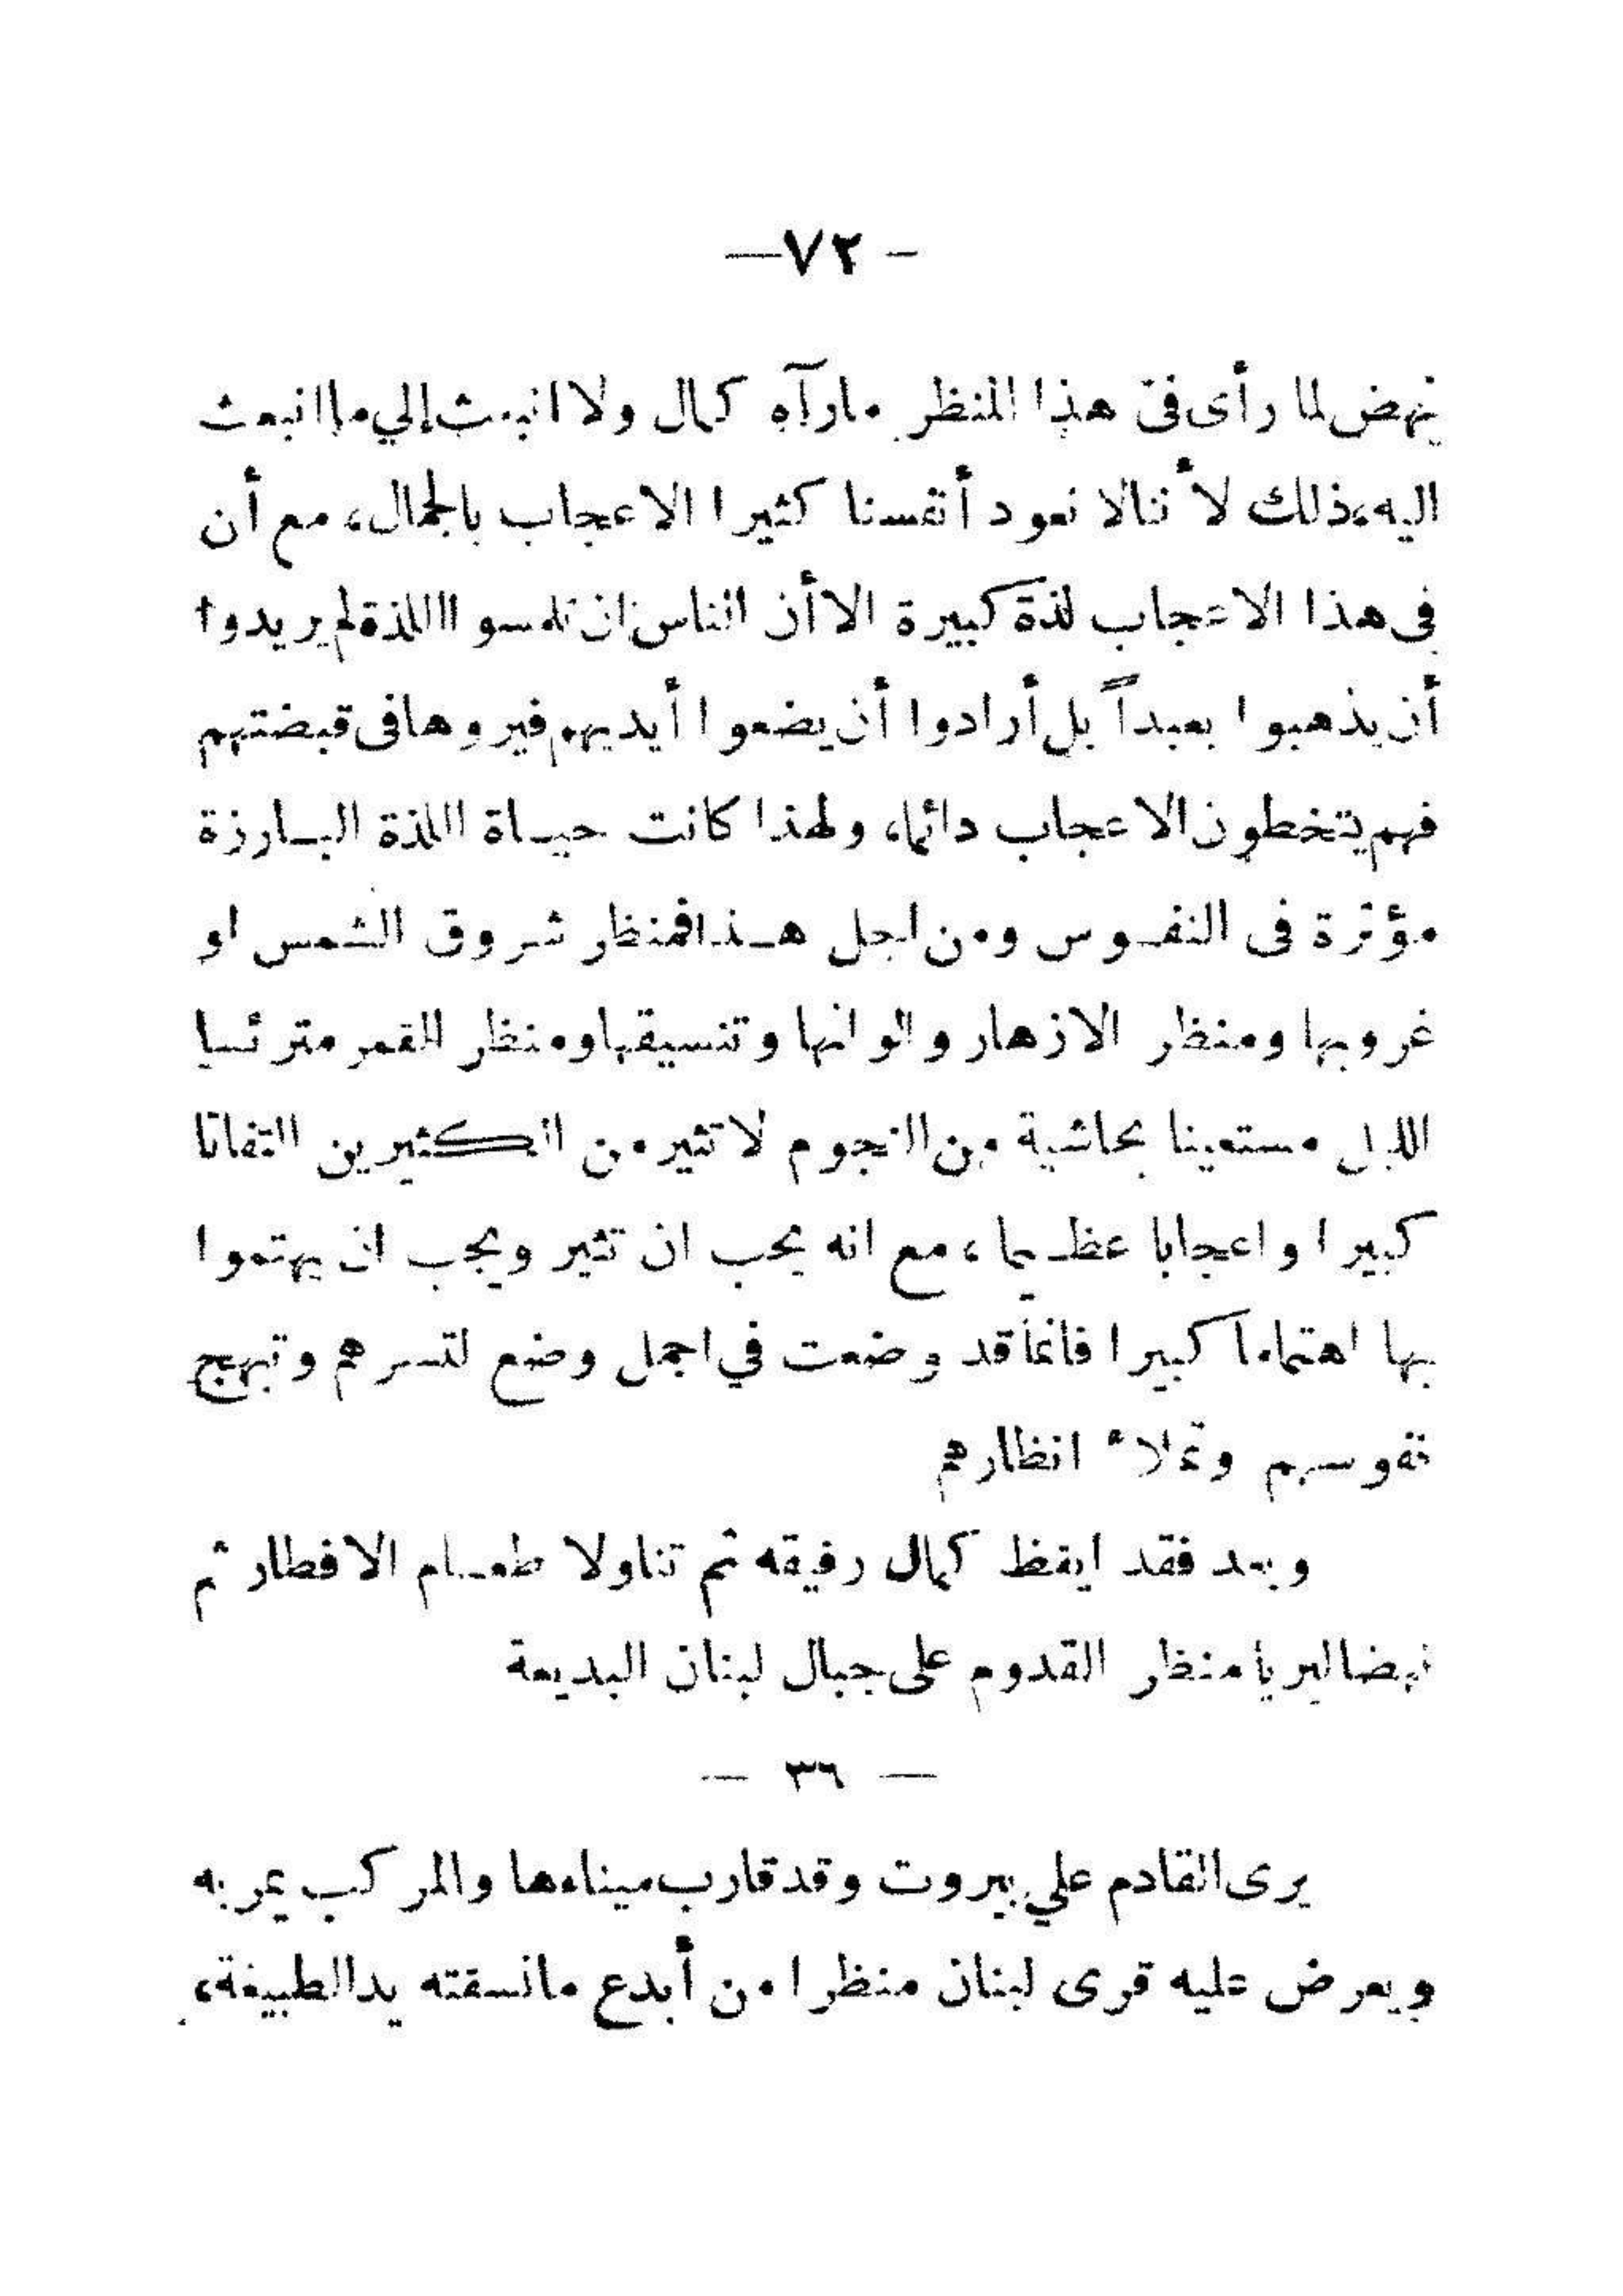 — ٧٢ —
نهض لما رأى في هذا المنظر مارآه كمال ولا انبعث إلي ما انبعث
اليه، ذلك لأننا لا نعود أنفسنا كثيرا الاعجاب بالجمال، مع أن
في هذا الاعجاب لذة كبيرة الا أن الناس ان تلمسوا اللذة لم يريدوا
أن يذهبوا بعيداً بل أرادوا أن يضعوا أيديهم فيروها في قبضتهم
فهم يتخطون الاعجاب دائما، ولهذا كانت حياة اللذة البارزة
مؤثرة في النفوس ومن اجل هذا فمنظر شروق الشمس او
غروبها ومنظر الازهار والوانها وتنسيقها ومنظر القمر مترئسا
الليل مستعينا بحاشية من النجوم لا تثير من الكثيرين التفاتا
كبيرا واعجابا عظيما، مع انه يحب ان تثير ويجب ان يهتموا
بها اهتماما كبيرا فانما قد وضعت في اجمل وضع لتسرهم وتبهج
نفوسهم وتملأ انظارهم
وبعد فقد ايقظ كمال رفيقه ثم تناولا طعام الافطار ثم
نهضا ليريا منظر القدوم على جبال لبنان البديعة
— ٣٦ —
يرى القادم علي بيروت وقد قارب ميناءها والمركب يمر به
ويعرض عليه قرى لبنان منظرا من أبدع ما نسقته يد الطبيعة،